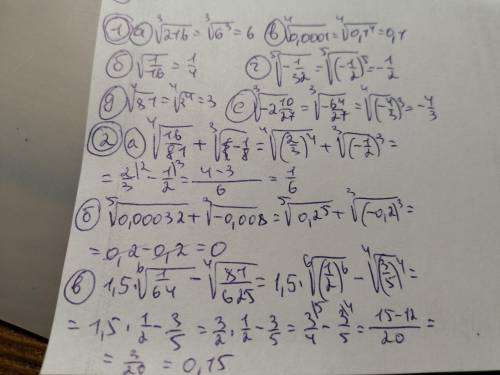 ① а) ∛216 = ∛6³ = 6 в) ⁴√0,0001 = ⁴√0,1⁴ = 0,1
б) √(1/16) = 1/4 г) ⁵√(-1/32) = ⁵√(-1/2)⁵ = -1/2
д) ⁴√81 = ⁴√3⁴ = 3 е) ∛(-2 10/27) = ∛(-64/27) = ∛(-4/3)³ = -4/3
② а) ⁴√(16/81) + ∛(-1/8) = ⁴√(2/3)⁴ + ∛(-1/2)³ =
= 2/3 - 1/2 = (4-3)/6 = 1/6
б) ⁵√0,00032 + ∛-0,008 = ⁵√0,2⁵ + ∛(-0,2)³ =
= 0,2 - 0,2 = 0
в) 1,5 · ⁶√(1/64) - ⁴√(81/625) = 1,5 · ⁶√(1/2)⁶ - ⁴√(3/5)⁴ =
= 1,5 · 1/2 - 3/5 = 3/2 · 1/2 - 3/5 = 3/4 - 3/5 = (15-12)/20 =
= 3/20 = 0,15